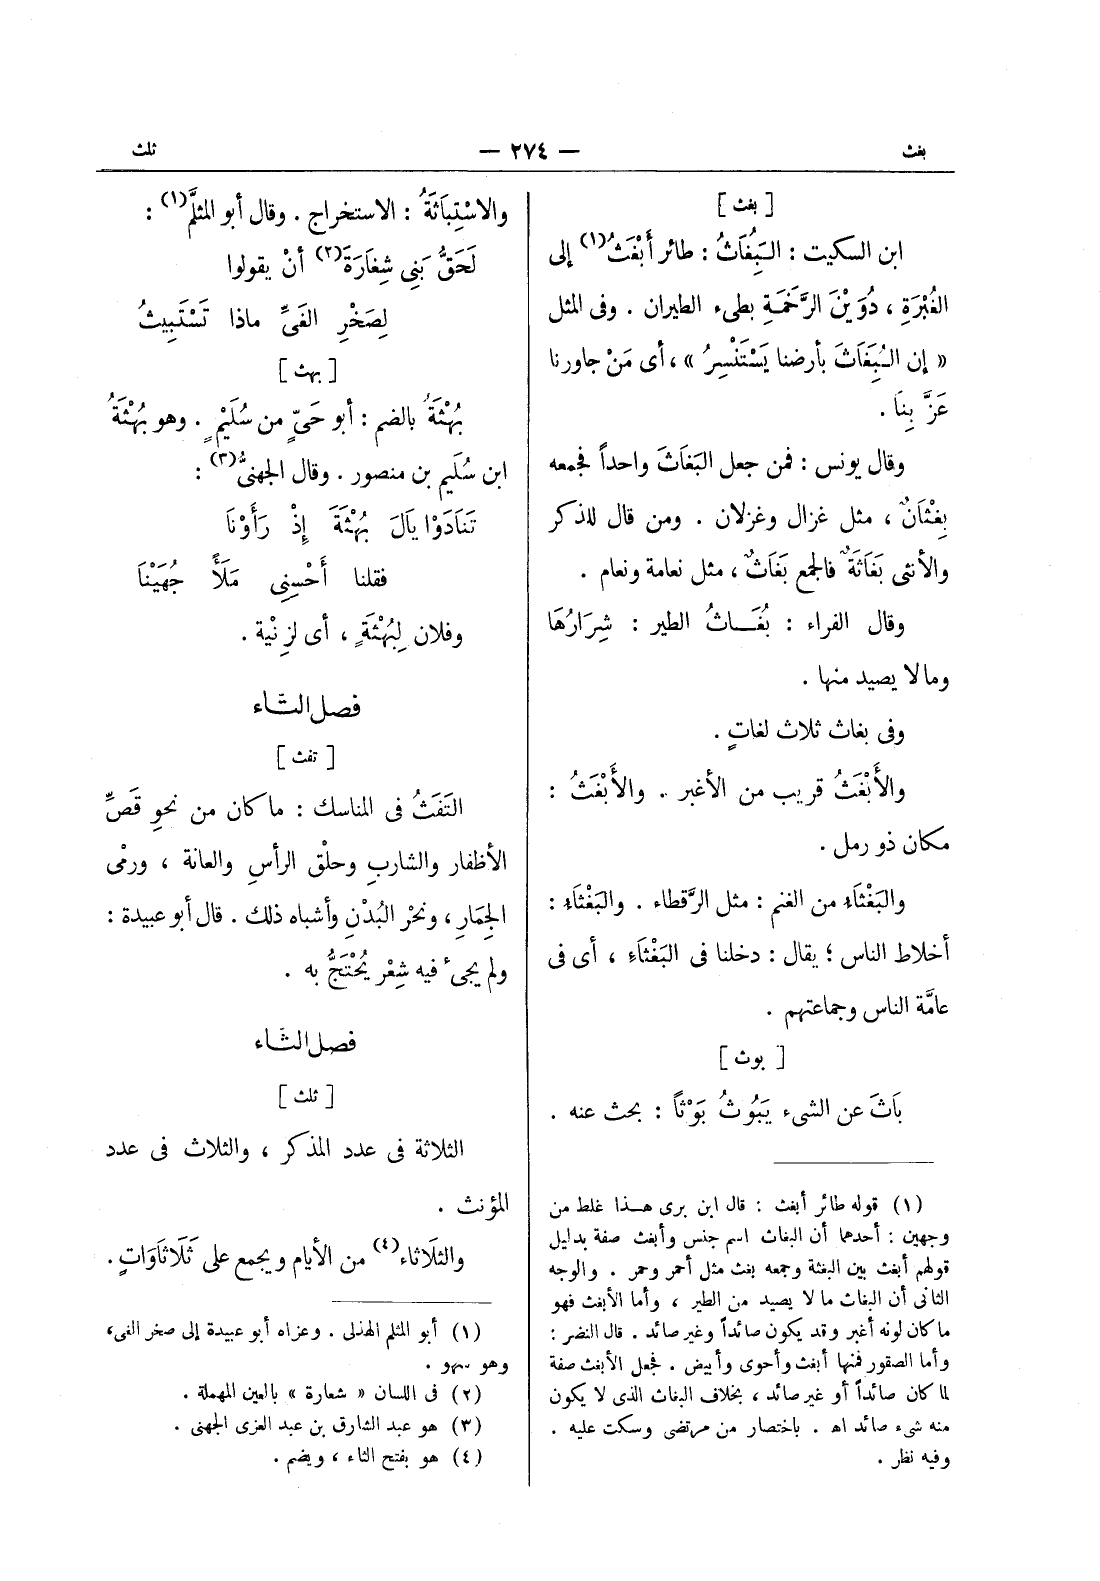 بغث
— ٢٧٤ —
ثلث
[ بغث ]
ابن السكيت : البِغُاَثُ : طائر أَبْغَثُ(١) إلى
الغُبْرَةِ ، دُوَيْنَ الرَّخَمَةِ بطىء الطيران . وفى المثل
« إن البُِغَاثَ بأرضنا يَسْتَنْسِرُ » ، أى مَنْ جاورنا
عَزَّ بِنَا .
وقال يونس : فمن جعل البَغَاثَ واحداً فجمعه
بِغْثَانٌ ، مثل غزال وغزلان . ومن قال للذكر
والأنثى بَغَاثَةٌ فالجمع بَغَاثٌ ، مثل نعامة ونعام .
وقال الفراء : بُغَـاثُ الطير : شِرَارُهَا
وما لا يصيد منها .
وفى بغاث ثلاث لغاتٍ .
والأَبْغَثُ قريب من الأغبر . والأَبْغَثُ :
مكان ذو رمل .
والبَغْثَاءِ من الغنم : مثل الرَّقطاء . والبَغْثَاءِ :
أخلاط الناس ؛ يقال : دخلنا فى البَغْثَاءِ ، أى فى
عامَّة الناس وجماعتهم .
[ بوث ]
بَاثَ عن الشىء يَبُوثُ بَوْثاً : بحث عنه .
(١) قوله طائر أبغث : قال ابن برى هـذا غلط من
وجهين : أحدهما أن البغاث اسم جنس وأبغث صفة بدليل
قولهم أبغث بين البغثة وجمعه بغث مثل أحمر وحمر . والوجه
الثانى أن البغاث ما لا يصيد من الطير ، وأما الأبغث فهو
ما كان لونه أغبر وقد يكون صائداً وغير صائد . قال النضر :
وأما الصقور فمنها أبغث وأحوى وأبيض . فجعل الأبغث صفة
لما كان صائداً أو غير صائد ، بخلاف البغاث الذى لا يكون
منه شىء صائد اه . باختصار من مرتضى وسكت عليه .
وفيه نظر .
والاسْتِبَاثَةُ : الاستخراج . وقال أبو المثلَّم(١) :
لَحَقُّ بَنِى شِغَارَةَ(٢) أنْ يقولوا
لِصَخْرِ الغَىِّ ماذا تَسْتَبِيثُ
[ بهث ]
بُهْثَةُ بالضم : أبو حَىٍّ من سُلَيْمٍ . وهو بُهْثَةُ
ابن سُلَيم بن منصور . وقال الجهنىُّ(٣) :
تَنَادَوْا يَالَ بُهْثَةَ إِذْ رَأَوْنَا
فقلنا أَحْسِنِى مَلَأً جُهَيْنَا
وفلان لِبُهْثَةٍ ، أى لِزِنْية .
فصل التـاء
[ تفث ]
التَفَثُ فى المناسك : ما كان من نحوِ قَصِّ
الأظفار والشاربِ وحلْق الرأسِ والعانة ، ورمْى
الجِمَارِ ، ونحْر البُدْنِ وأشباه ذلك . قال أبو عبيدة :
ولم يجىء فيه شِعْر يُحْتَجُّ به .
فصل الثـاء
[ ثلث ]
الثلاثة فى عدد المذكر ، والثلاث فى عدد
المؤنث .
والثلَاثاء(٤) من الأيام ويجمع على ثَلَاثَاوَاتٍ .
(١) أبو المثلم الهذلى . وعزاه أبو عبيدة إلى صخر الغى ،
وهو سهو .
(٢) فى اللسان « شعارة » بالعين المهملة .
(٣) هو عبد الشارق بن عبد العزى الجهنى .
(٤) هو بفتح الثاء ، ويضم .